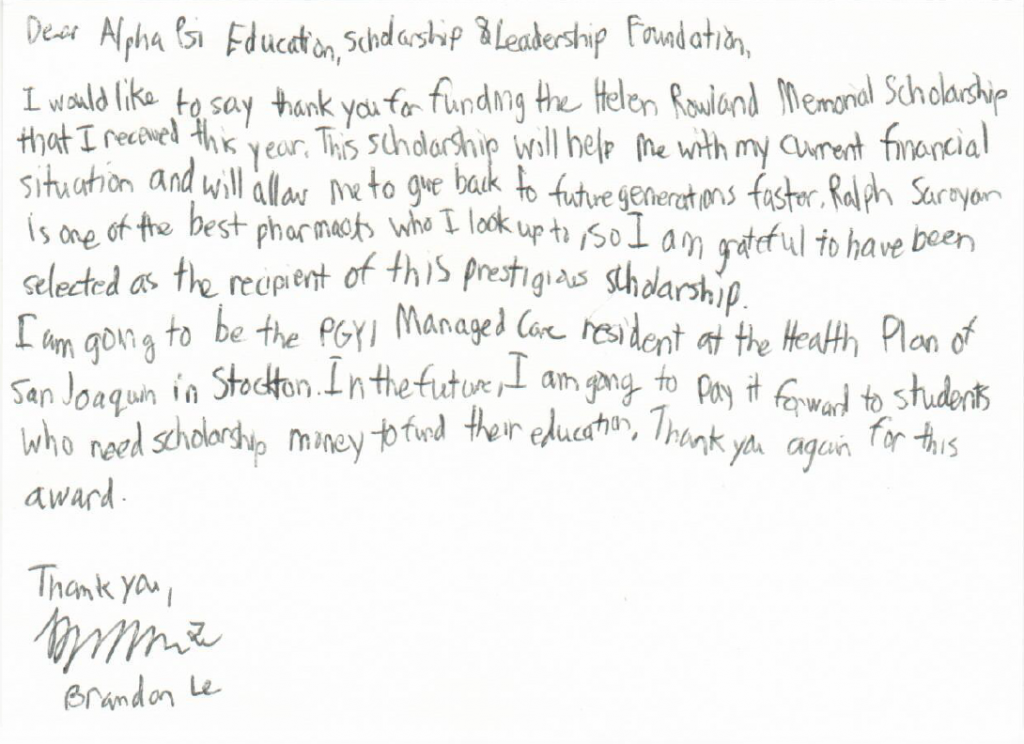 Dear Alpha Psi Education, Scholarship & Leadership Foundation,
I would like to say thank you for funding the Helen Rowland Memorial Scholarship
that I received this year. This scholarship will help me with my current financial
situation and will allow me to give back to future generations faster. Ralph Saroyan
is one of the best pharmacists who I look up to, so I am grateful to have been
selected as the recipient of this prestigious scholarship.
I am going to be the PGY1 Managed Care resident at the Health Plan of
San Joaquin in Stockton. In the future, I am going to pay it forward to students
who need scholarship money to fund their education. Thank you again for this
award.
Thank you,
Brandon Le